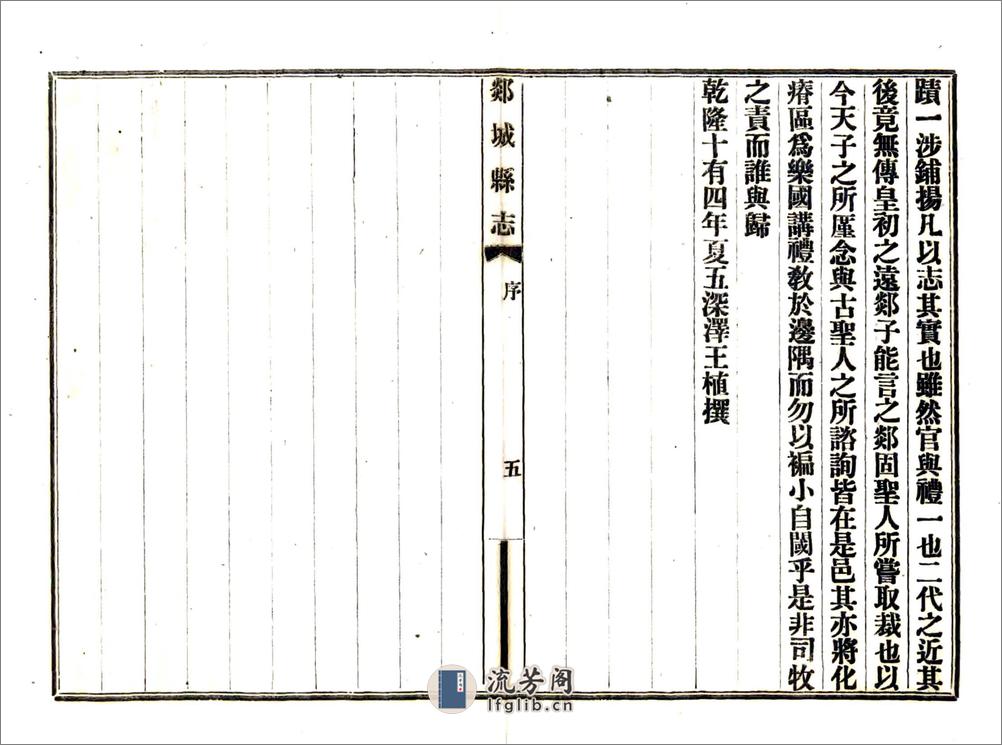 蹟一涉鋪揚凡以志其實也雖然官與禮一也二代之近其
後竟無傳皇初之遠郯子能言之郯固聖人所嘗取裁也以
今天子之所廑念與古聖人之所諮詢皆在是邑其亦將化
瘠區爲樂國講禮教於邊隅而勿以褊小自閡乎是非司牧
之責而誰與歸
乾隆十有四年夏五深澤王植撰
郯城縣志
序
五
流芳阁
lfglib.cn